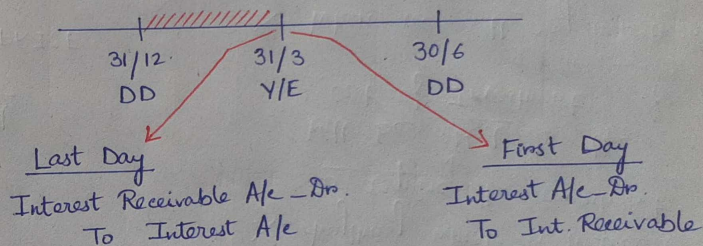 31/12. 31/3 30/6
DD Y/E DD
Last Day
Interest Receivable A/c - Dr.
To Interest A/c
First Day
Interest A/c - Dr.
To Int. Receivable